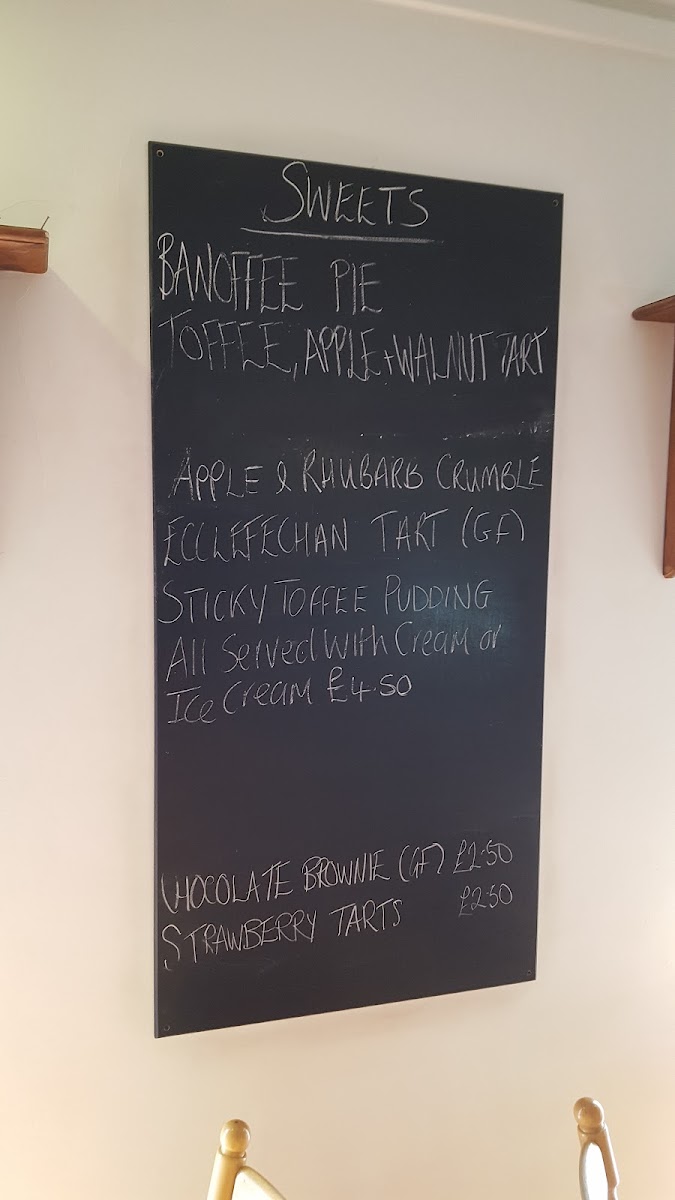 SWEETS
BANOFFEE PIE
TOFFEE, APPLE + WALNUT TART
APPLE & RHUBARB CRUMBLE
ECCLEFECHAN TART (GF)
STICKY TOFFEE PUDDING
All Served With Cream or
Ice Cream £4.50
CHOCOLATE BROWNIE (GF) £2.50
STRAWBERRY TARTS £2.50